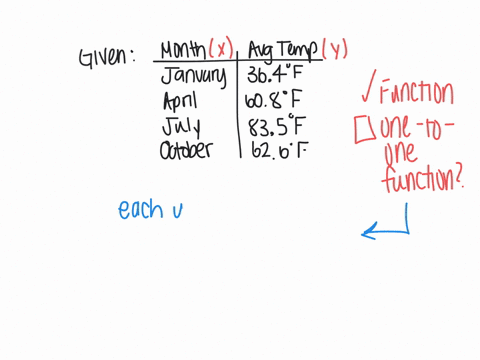 Given: Month (x) Avg Temp (y)
January 36.4°F
April 60.8°F
July 83.5°F
October 62.6°F
✓ Function
one-to-
one
function?
each u